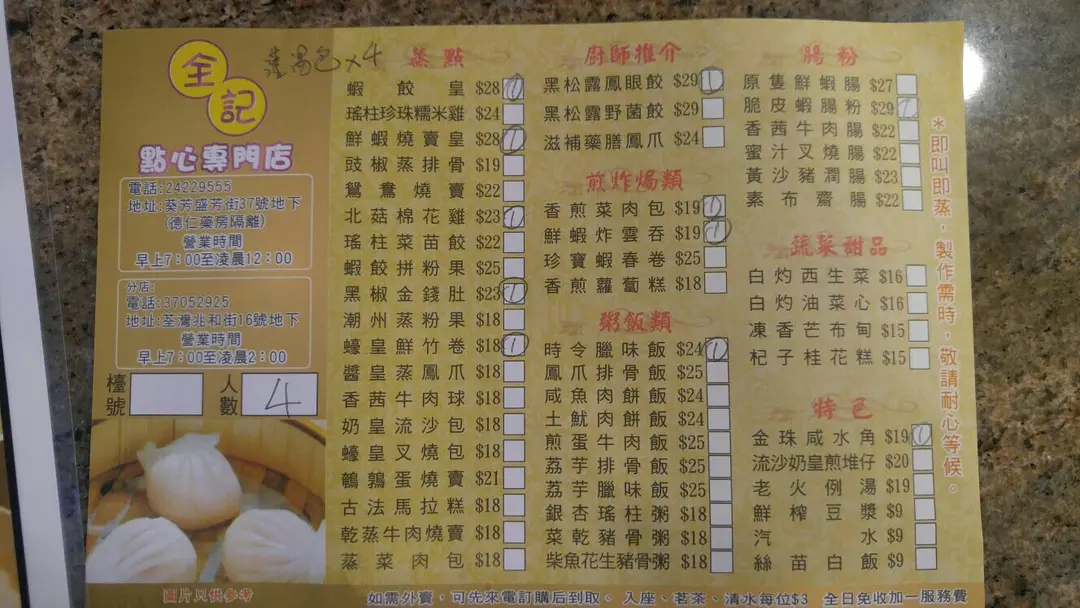 全記
點心專門店
電話:24229555
地址:葵芳盛芳街37號地下
(德仁藥房隔離)
營業時間
早上7:00至凌晨12:00
分店:
電話:37052925
地址:荃灣兆和街16號地下
營業時間
早上7:00至凌晨2:00
檯號
人數 4
圖片只供參考
湯包x4
蒸點
蝦餃皇 $28 1
瑤柱珍珠糯米雞 $24
鮮蝦燒賣皇 $28 1
豉椒蒸排骨 $19
鴛鴦燒賣 $22
北菇棉花雞 $23 1
瑤柱菜苗餃 $22
蝦餃拼粉果 $25
黑椒金錢肚 $23 1
潮州蒸粉果 $18
蠔皇鮮竹卷 $18 1
醬皇蒸鳳爪 $18
香茜牛肉球 $18
奶皇流沙包 $18
蠔皇叉燒包 $18
鵪鶉蛋燒賣 $21
古法馬拉糕 $18
乾蒸牛肉燒賣 $18
蒸菜肉包 $18
廚師推介
黑松露鳳眼餃 $29 1
黑松露野菌餃 $29
滋補藥膳鳳爪 $24
煎炸焗類
香煎菜肉包 $19 1
鮮蝦炸雲吞 $19 1
珍寶蝦春卷 $25
香煎蘿蔔糕 $18
粥飯類
時令臘味飯 $24 1
鳳爪排骨飯 $25
咸魚肉餅飯 $24
土魷肉餅飯 $24
煎蛋牛肉飯 $25
荔芋排骨飯 $25
荔芋臘味飯 $25
銀杏瑤柱粥 $18
菜乾豬骨粥 $18
柴魚花生豬骨粥 $18
腸粉
原隻鮮蝦腸 $27
脆皮蝦腸粉 $29 1
香茜牛肉腸 $22
蜜汁叉燒腸 $22
黃沙豬潤腸 $23
素布齋腸 $22
蔬菜甜品
白灼西生菜 $16
白灼油菜心 $16
凍香芒布甸 $15
杞子桂花糕 $15
特色
金珠咸水角 $19 1
流沙奶皇煎堆仔 $20
老火例湯 $19
鮮榨豆漿 $9
汽水 $9
絲苗白飯 $9
*即叫即蒸,製作需時,敬請耐心等候。
如需外賣,可先來電訂購后到取。 入座、茗茶、清水每位$3 全日免收加一服務費